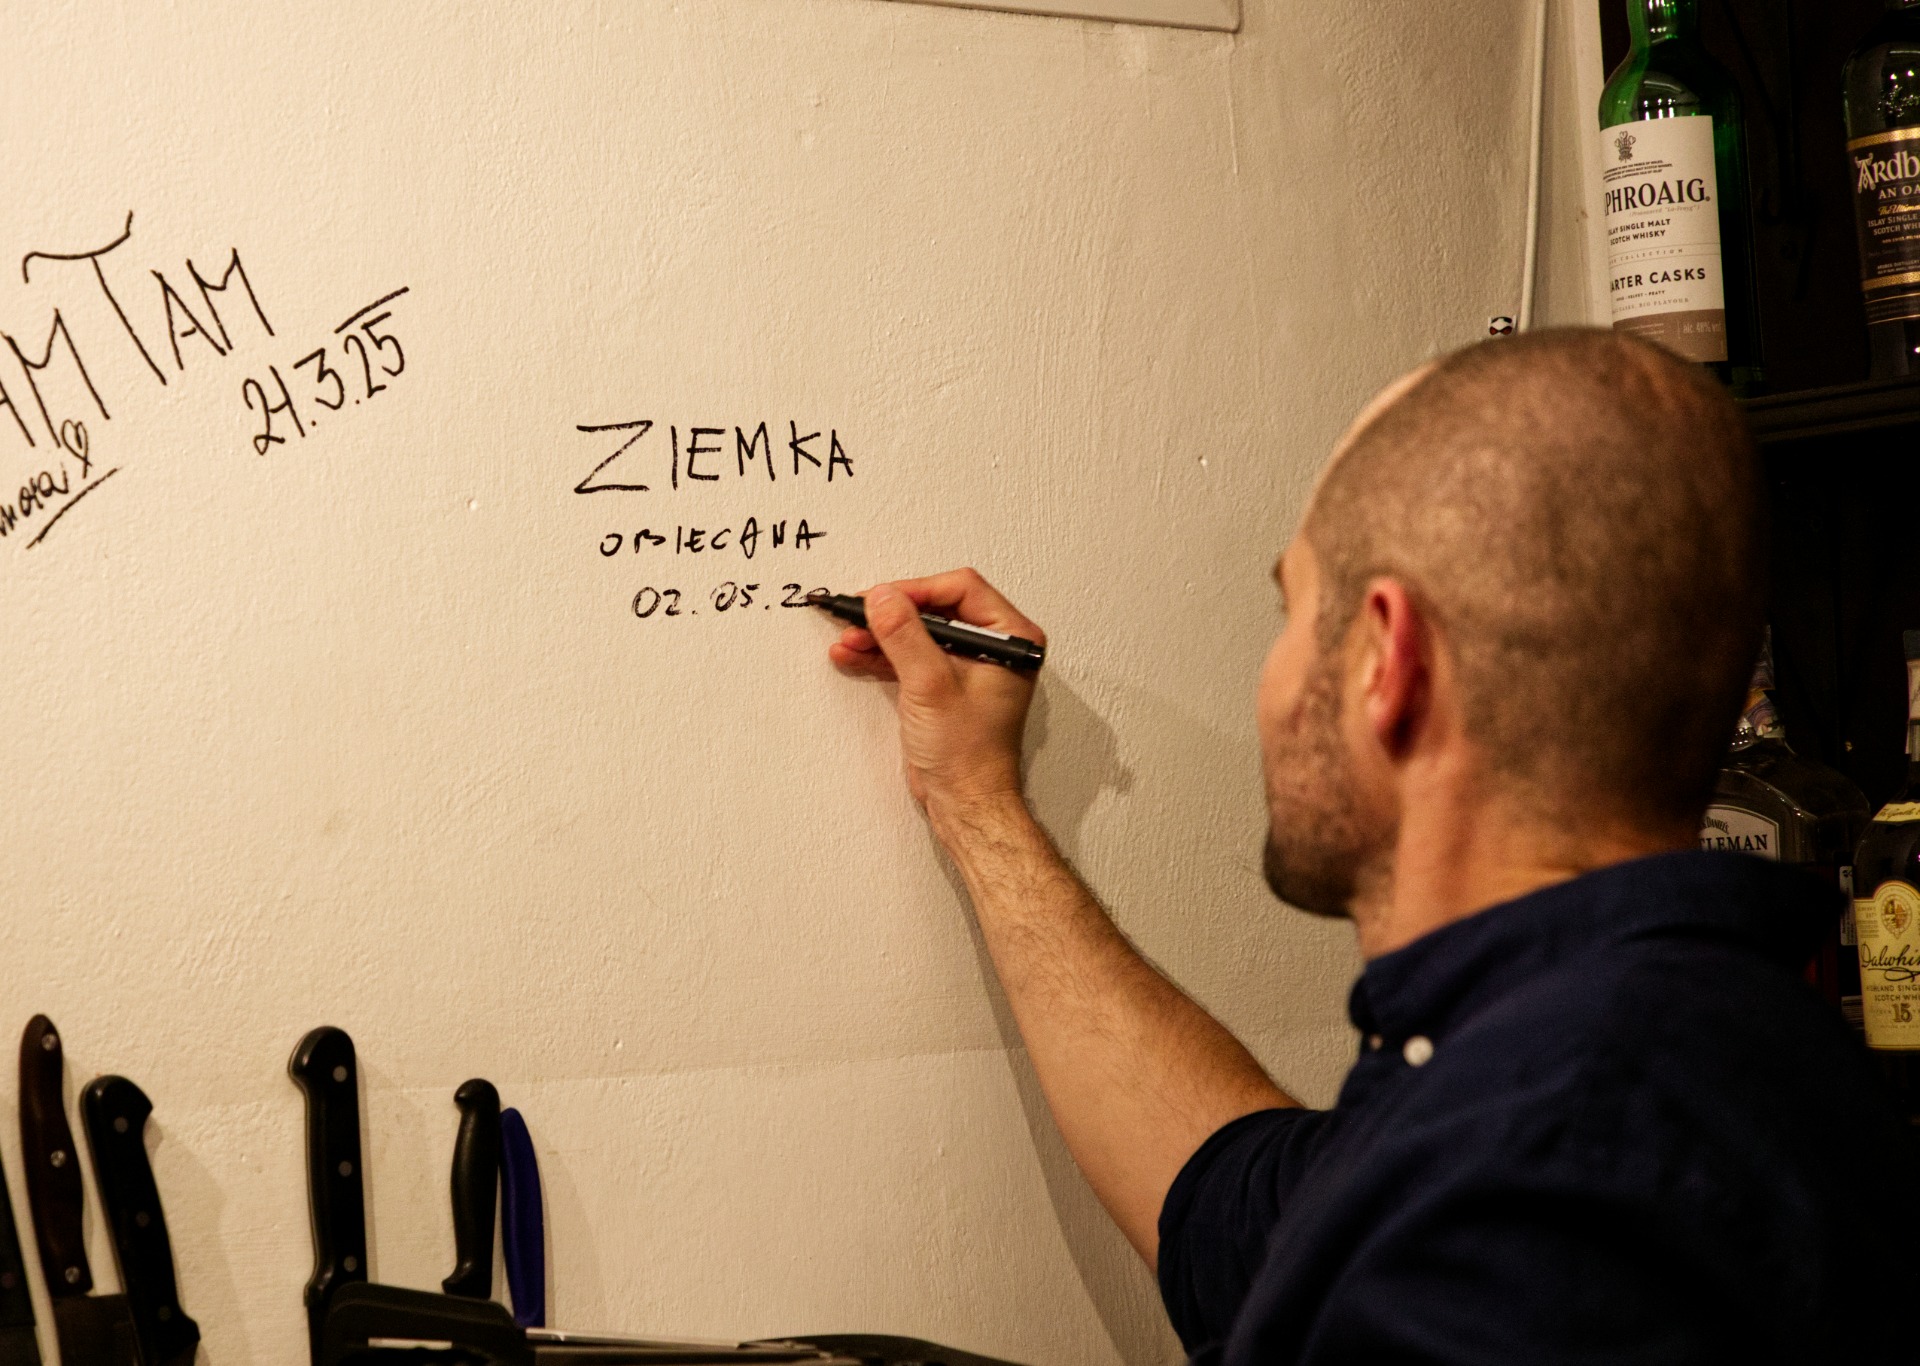 TAM
21.3.25
ZIEMKA
OBIECANA
02.05.20
PHROAIG.
ISLAY SINGLE MALT
SCOTCH WHISKY
ARTER CASKS
ARDB
AN OA
The Ultima
ISLAY SINGLE
SCOTCH WHI
TLEMAN
Dalwhi
HIGHLAND SING
SCOTCH WHI
15